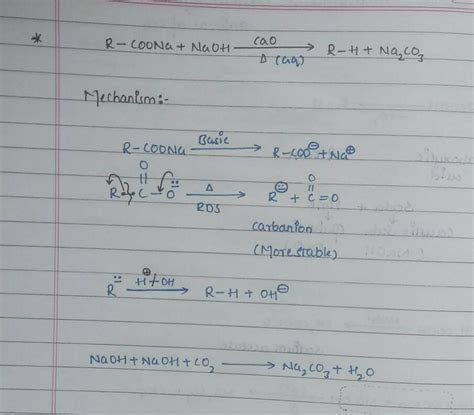 * R-COONa + NaOH CaO → Δ (aq) R-H + Na₂CO₃
Mechanism:-
R-COONa Basic → R-COO⊖ + Na⊕
O
||
R-C-O⊖ Δ → RDS R⊖ + C=O
O
||
carbanion
(More stable)
R H⊕/OH → R-H + OH⊖
NaOH + NaOH + CO₂ → Na₂CO₃ + H₂O